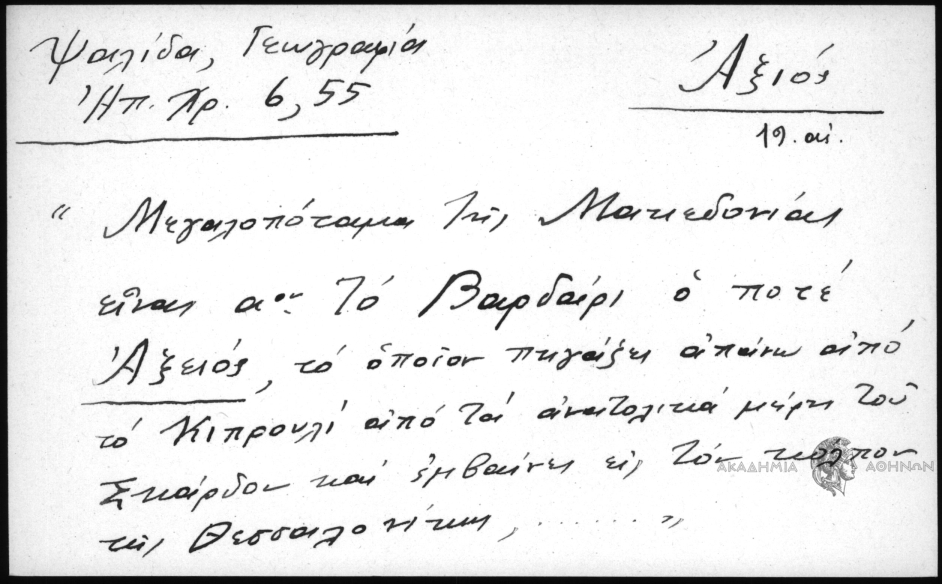 Ψαλίδα, Γεωγραφία
Ἠπ. Χρ. 6, 55
Ἀξιός
19. αἰ.
" Μεγαλοπόταμα τῆς Μακεδονίας
εἶναι αον. τό Βαρδάρι ὁ ποτέ
Ἀξειός, τό ὁποῖον πηγάζει ἀπάνω ἀπό
τό Κιπρουλί ἀπό τά ἀνατολικά μέρη τοῦ
Σκάρδου καί ἐμβαίνει εἰς τόν κόλπον
τῆς Θεσσαλονίκης, ....... "
ΑΚΑΔΗΜΙΑ ΑΘΗΝΩΝ